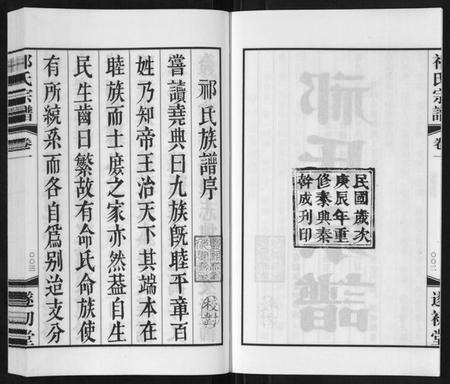 祁氏宗譜
卷一
〇〇二
遂初堂
民國歲次
庚辰年重
修泰興秦
幹成刊印
校對
祁氏族譜序
嘗讀堯典曰九族旣睦平章百
姓乃知帝王治天下其端本在
睦族而士庶之家亦然葢自生
民生齒日繁故有命氏命族使
有所統系而各自爲别治支分
祁氏宗譜
卷一
〇〇三
遂初堂